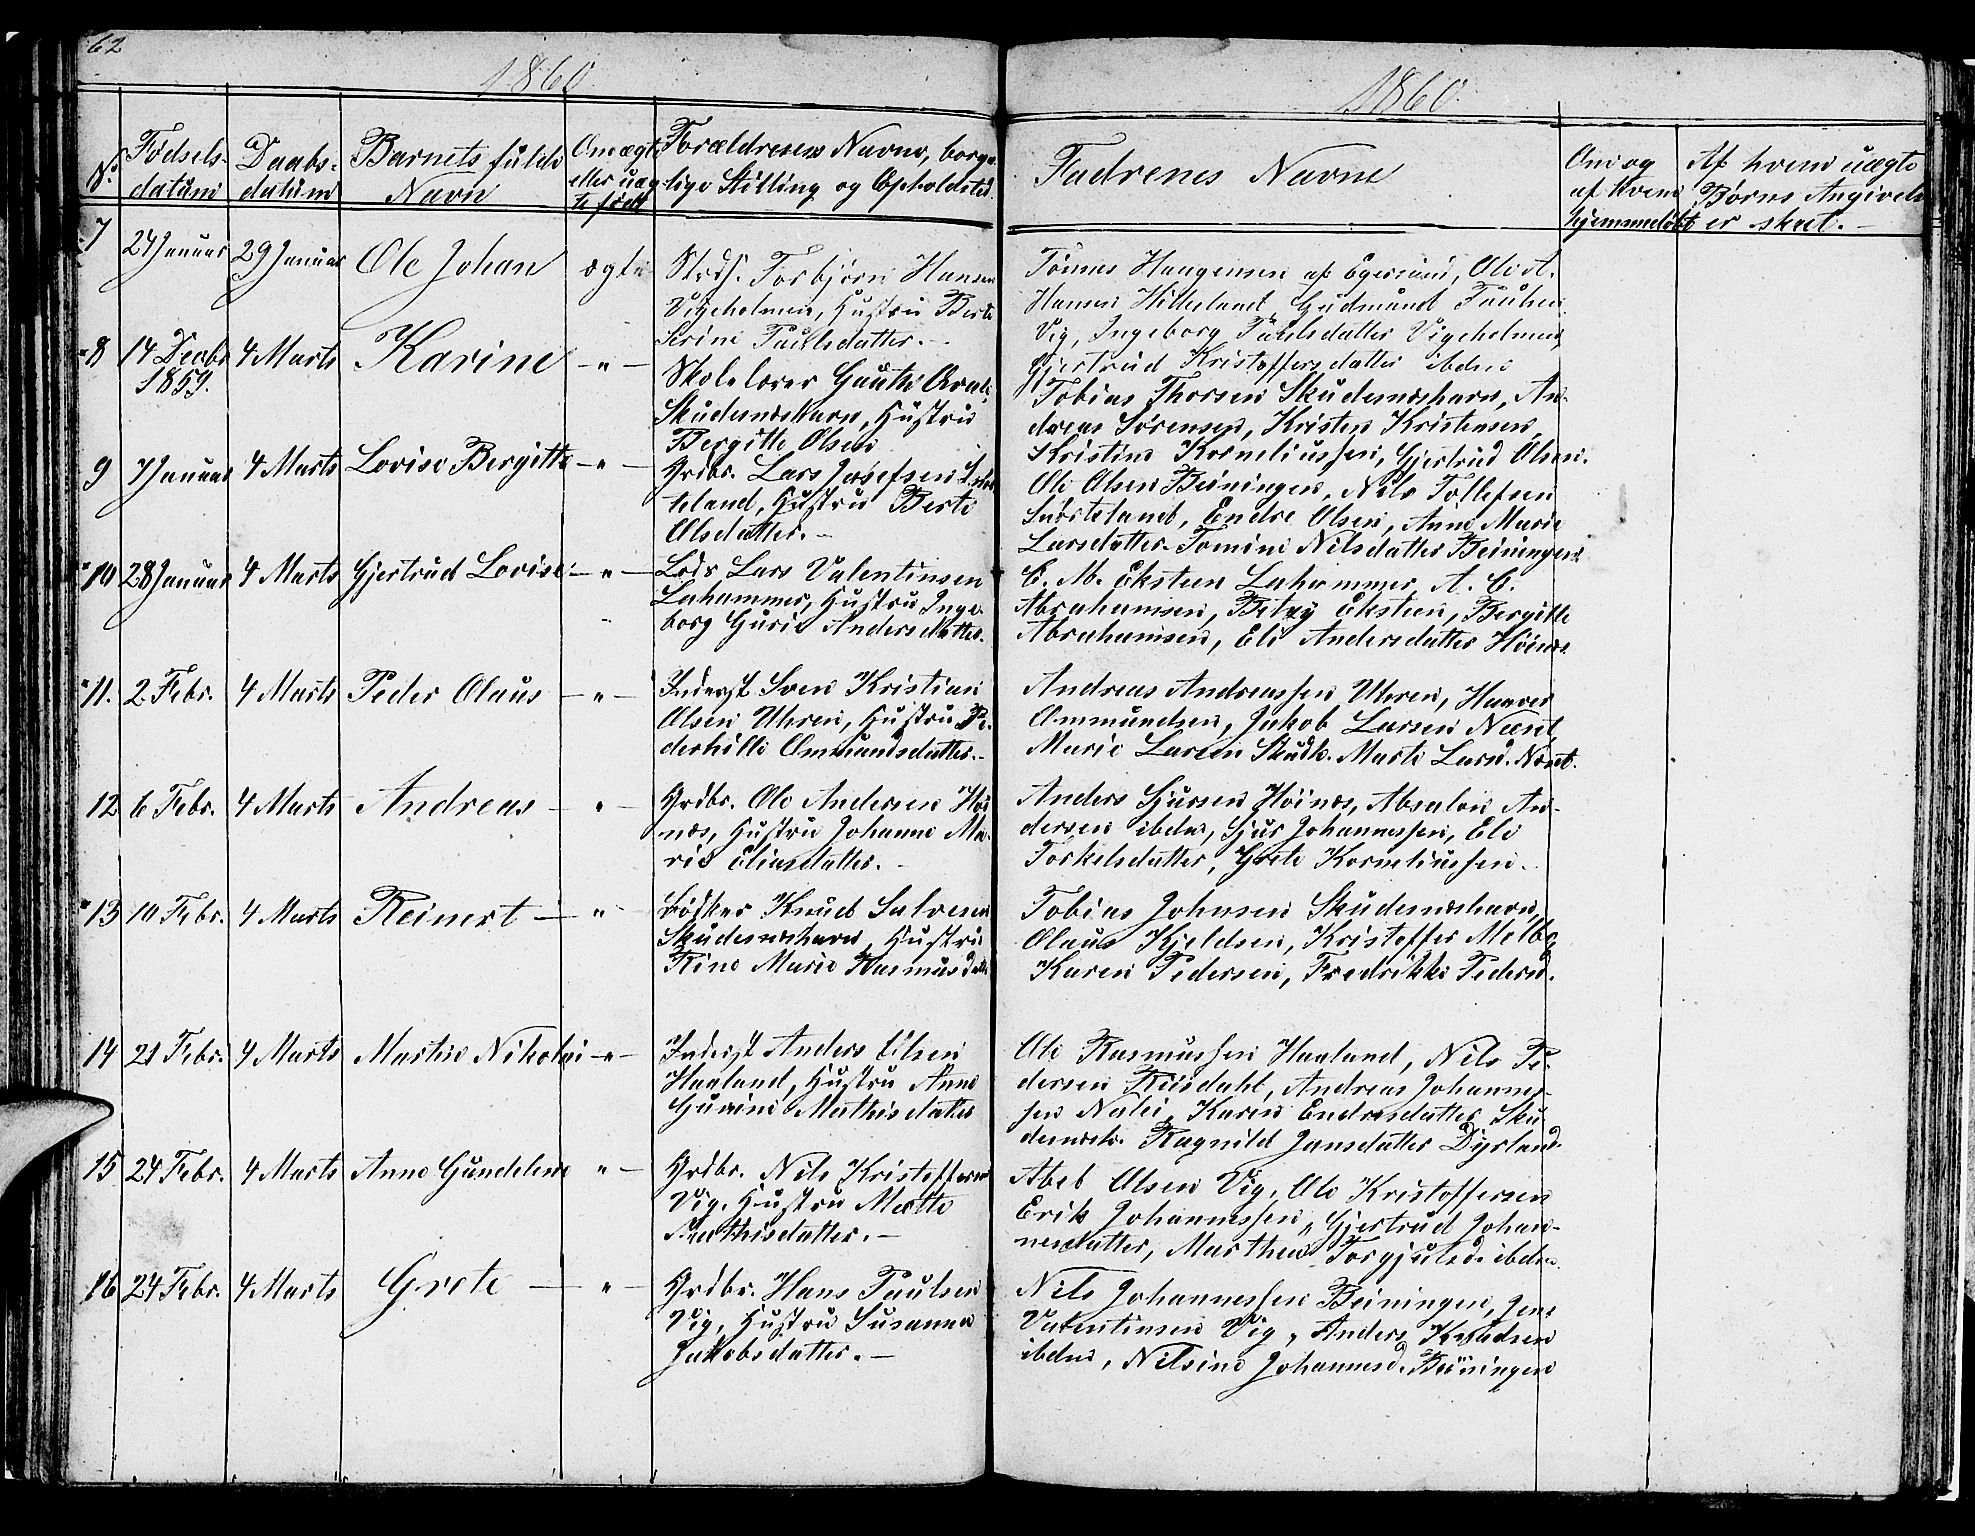 62
1860
1860.
No. Fødsels-datum Daabs-datum Barnets fulde Navn Om ægte eller uægte født Forældrenes Navne, borgerlige Stilling og Opholdsted.
Fadrenes Navne
Om og af hvem hjemmedøbt
Af hvem uægte Børns Angivelse er skeet.
7 24 Januar 29 Januar Ole Johan ægte
Torbjørn Hansen
Vigeholmen, Hustru Berte
Serine Paulsdatter.
Tønnes Haagensen af Egersund, Ole A.
Hansen Hilleland, Gudmund Paulsen
Vig, Ingeborg Paulsdatter Vigeholmen,
Gjertrud Kristoffersdatter ibdm
8 14 Decbr 1859. 4 Marts Karine - " -
Skolelærer Gauthe
Skudeneshavn, Hustru
Bergitte Olsen
Tobias Thorsen Skudeneshavn, An-
dreas Sørensen, Kristen Kristensen,
Kristine Korneliussen, Gjertrud Olsen.
9 7 Januar 4 Marts Lovise Bergitte - " -
Grdbr. Lars Josefsen Snør-
teland, Hustru Berte
Olsdatter. -
Ole Olsen Beiningen, Nils Tollefsen
Snørteland, Endre Olsen, Anne Marie
Larsdatter. Tomine Nilsdatter Beiningen.
10 28 Januar 4 Marts Gjertrud Lovise - " -
Lods Lars Valentinsen
Lahammer, Hustru Inge-
borg Gurie Andersdatter.
E. M. Eksteen Lahammer, A. C.
Abrahamsen, Betzy Eksteen, Bergitte
Abrahamsen, Eli Andersdatter Høines
11. 2 Febr. 4 Marts Peder Olaus - " -
Inderst Sven Kristian
Olsen Uhren, Hustru Pe-
derhille Ommundsdatter. -
Andreas Andreassen Uhren, Haaver
Ommundsen, Jakob Larsen Næset,
Marie Larsen Skudh. Marte Larsd. Næset.
12 6 Febr. 4 Marts Andreas - " -
Grdbr. Ole Andersen Høi-
nes, Hustru Johanne Ma-
rie Eliasdatter. -
Anders Sjursen Høines, Absalon An-
dersen ibdm, Sjur Johannessen, Eli
Torkelsdatter, Grete Korneliussen.
13 10 Febr. 4 Marts Reinert - "
Bødker Knud Salvesen
Skudeneshavn, Hustru
Rine Marie Rasmusdatter
Tobias Johnsen Skudeneshavn,
Olaus Kjeldsen, Kristoffer Melby
Karen Pedersen, Fredrikke Pedersd.
14 21 Febr. 4 Marts Martin Nikolai - " -
Inderst Anders Olsen
Haaland, Hustru Anne
Gurine Mathisdatter
Ole Rasmussen Haaland, Nils Pe-
dersen Riisdahl, Andreas Johannes-
sen Nalei, Karen Endresdatter Sku-
denesh. Ragnild Jansdatter Dysland.
15 24 Febr. 4 Marts Anne Gundelene " -
Grdbr. Nils Kristoffersen
Vig, Hustru Mette
Mathisdatter. -
Abel Olsen Vig, Ole Kristoffersen
Erik Johannessen, Gjertrud Johan-
nesdatter, Marthea Torgjulsd. ibdm.
16 24 Febr. 4 Marts Grete - " -
Grdbr. Hans Paulsen
Vig, Hustru Susanna
Jakobsdatter. -
Nils Johannessen Beiningen, Jens
Valentinsen Vig, Anders Knudsen
ibdm, Nilsine Johannesd. Beiningen